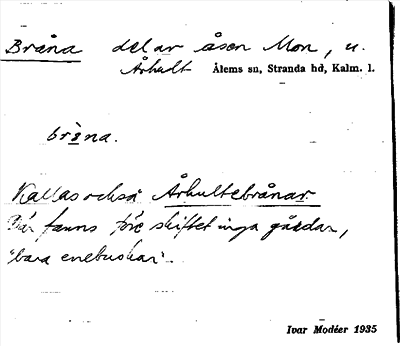 Bråna del av åsen Mon, u.
Århult Ålems sn, Stranda hd, Kalm. l.
brå̀na.
Kallas också Århultebrånar.
Där fanns före skiftet inga gårdar,
"bara enebuskar".
Ivar Modéer 1935